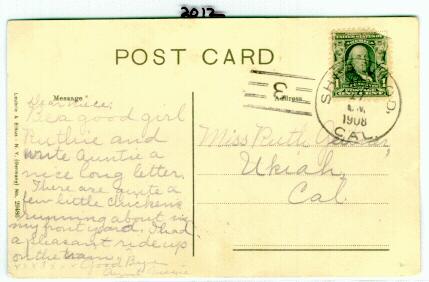 2012
POST CARD
Message
Address
3
1908
CAL.
Dear niece:
Be a good girl
Ruthie and
write Auntie a
nice long letter.
There are quite a
few little chickens
running about in
my front yard. I had
a pleasant ride up
on the train.
Good Bye
Miss Ruth
Ukiah,
Cal